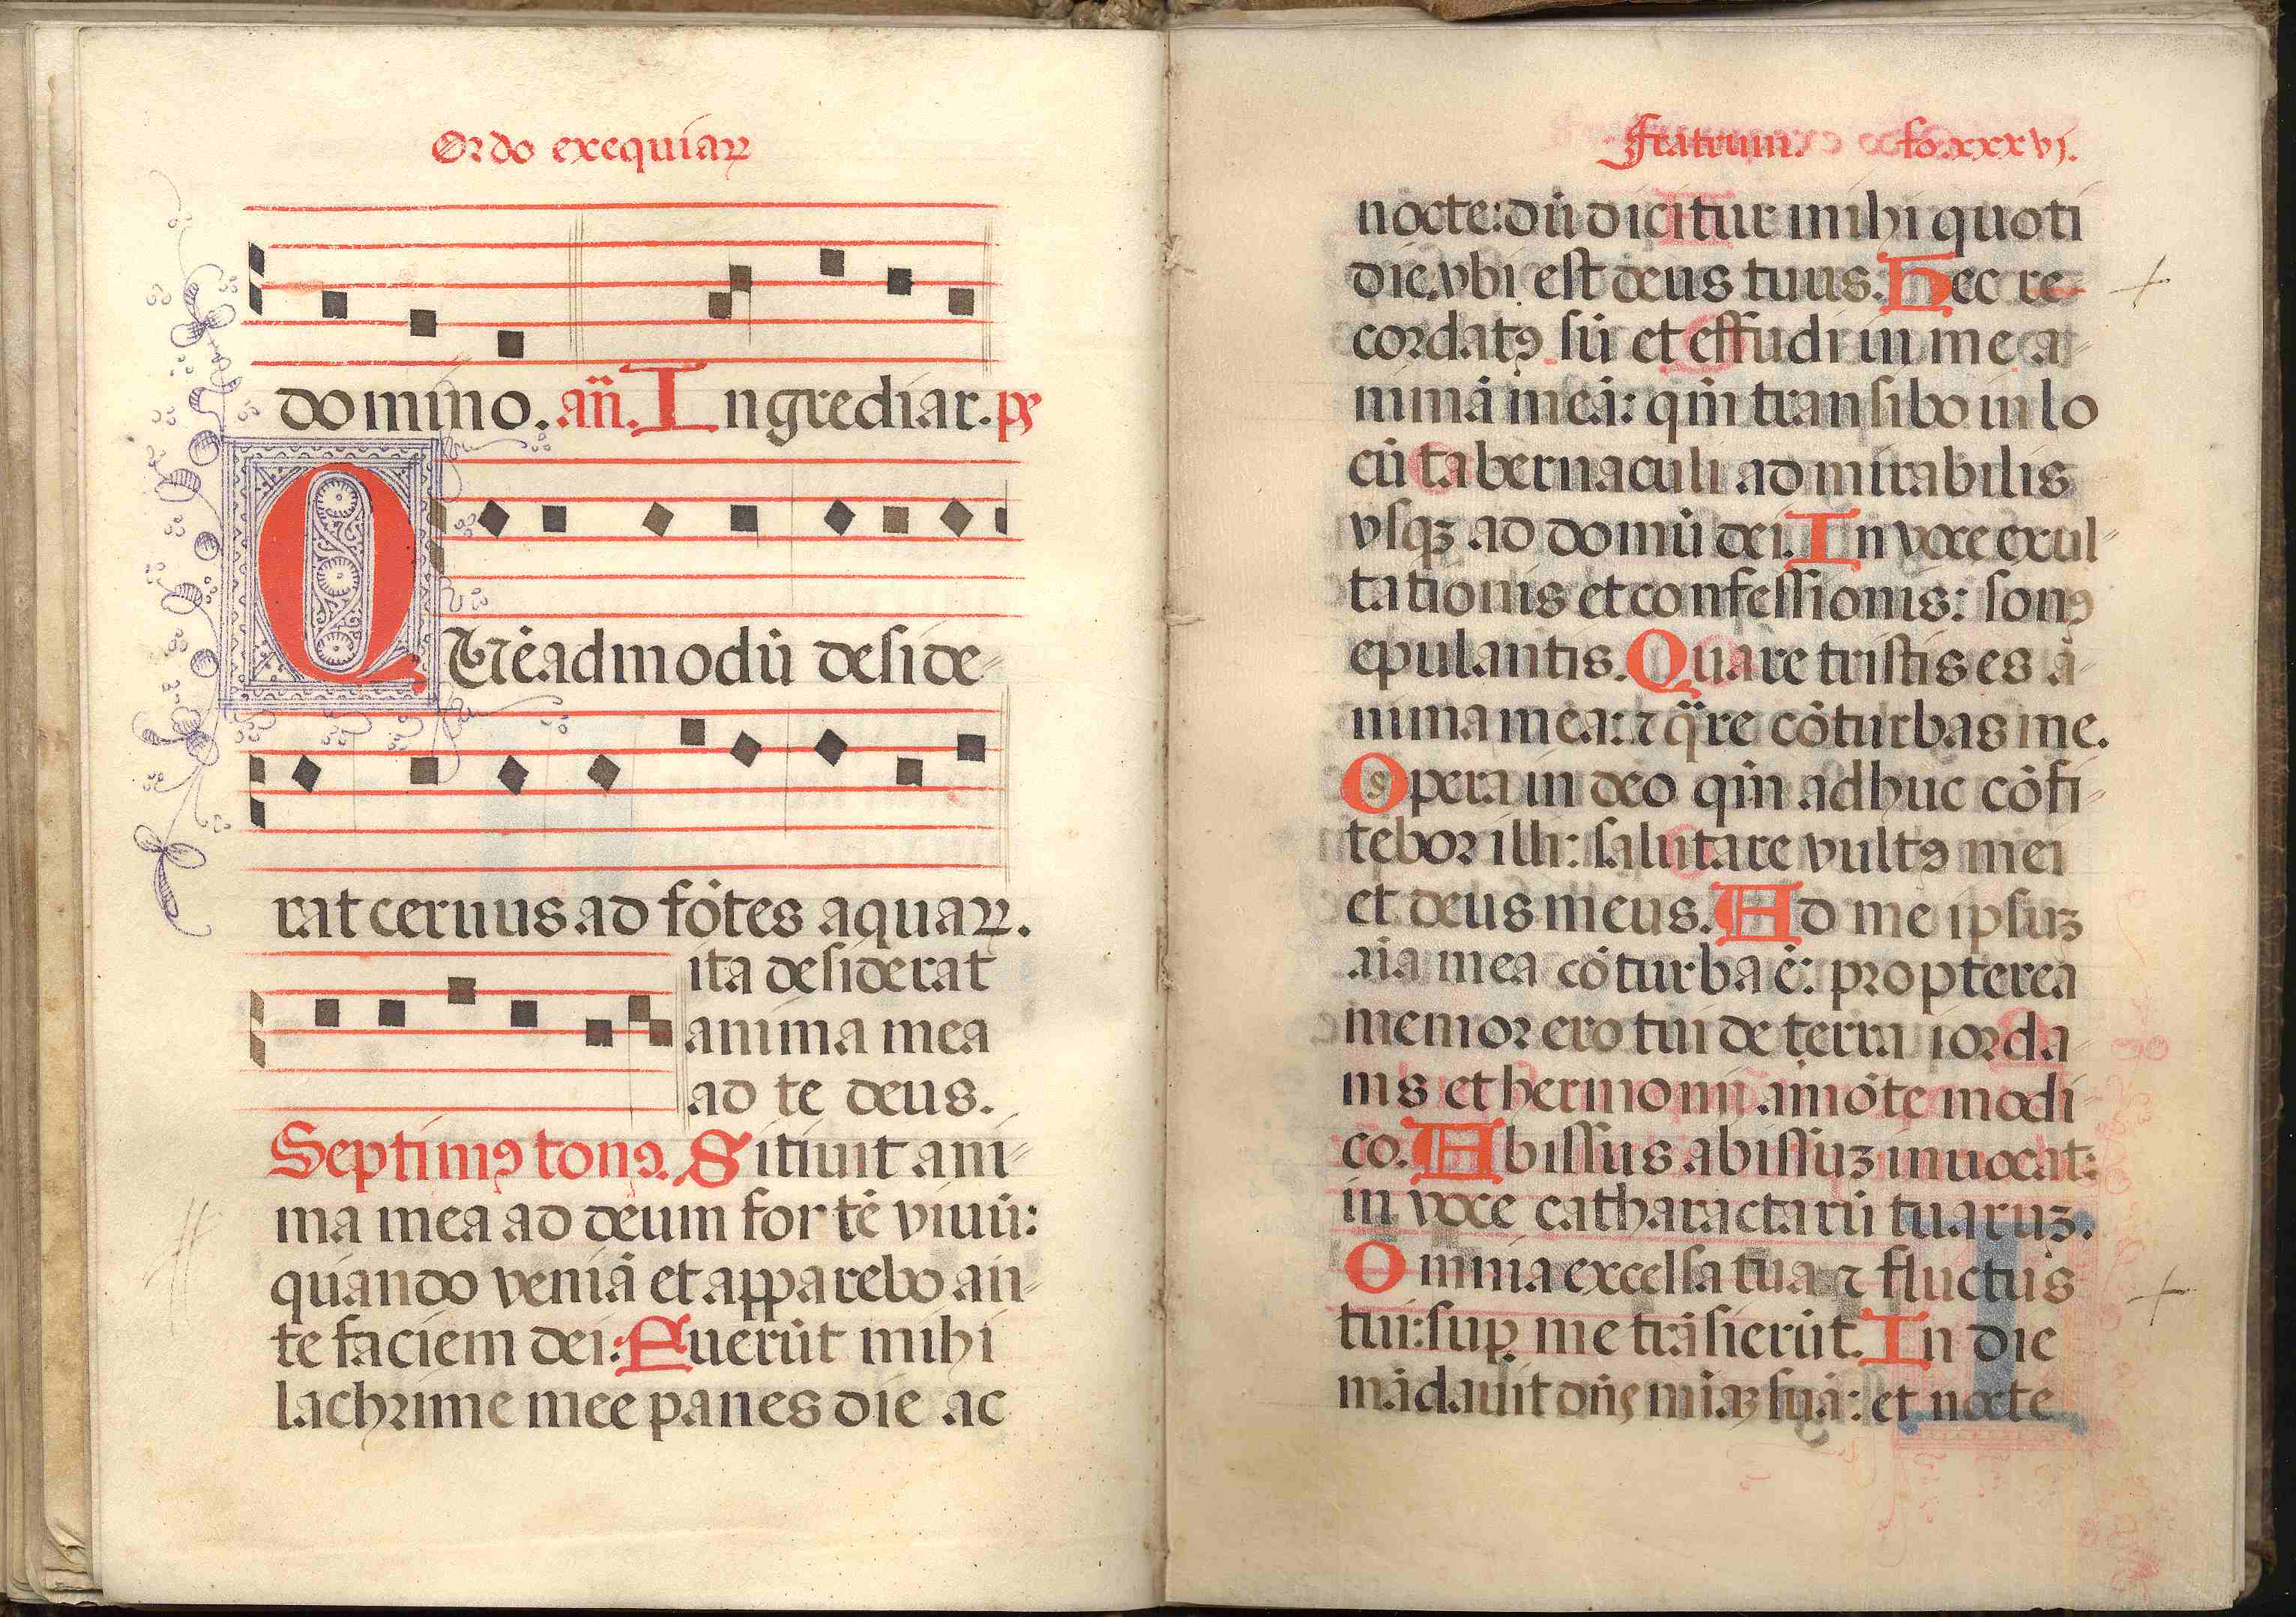 Ordo exequiaꝝ
domino. añ. Ingrediar. ps
QUēadmodū deside-
rat ceruus ad fōtes aquaꝝ.
ita desiderat
anima mea
ad te deus.
Septimꝰ tonꝰ. Sitiuit ani-
ma mea ad deum fortē viuū:
quando veniā et apparebo an-
te faciem dei: Fuerūt mihi
lachrime mee panes die ac
Fratrum. fo. xxxvj.
nocte: dū dicitur mihi quoti
die. vbi est deus tuus. Hec re-
cordatꝰ sū et effudi in me a-
nimā meā: qm̄ transibo in lo
cū tabernaculi admirabilis
vsqꝫ ad domū dei. In voce exul-
tationis et confessionis: sonꝰ
epulantis. Quare tristis es a-
nima mea: ⁊ q̄re cōturbas me.
Spera in deo qm̄ adhuc cōfi-
tebor illi: salutare vultꝰ mei
et deus meus. Ad me ipsuꝫ
aīa mea cōturba ē: propterea
memor ero tui de terra iorda-
nis et hermonij. a mōte modi-
co. Abissus abissuꝫ inuocat:
in voce catharactarū tuaruꝫ.
Omnia excelsa tua ⁊ fluctus
tui: suꝑ me trāsierūt. In die
mādauit dn̄s miaꝫ suā: et nocte